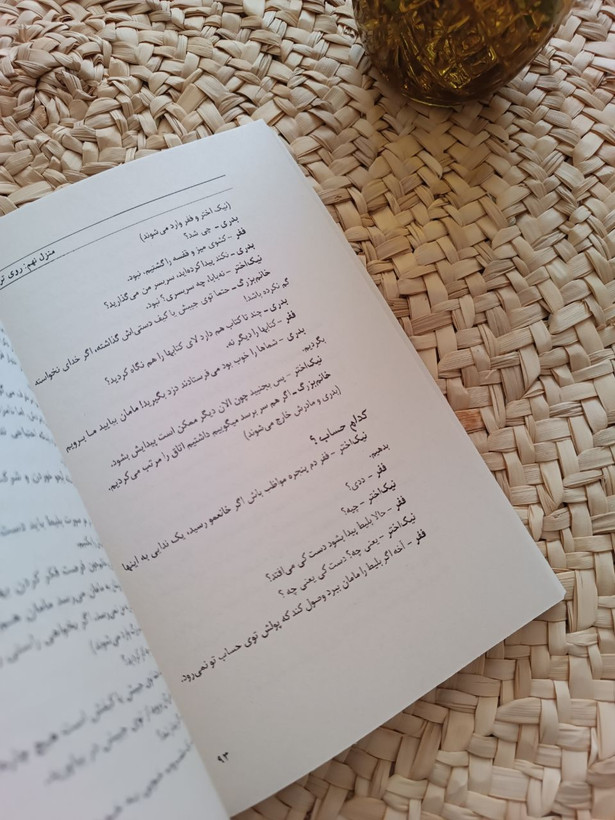 منزل نهم: روی تر
(نیک اختر و فقر وارد می‌شوند)
بدری – چی شد؟
فقر – کشوی میز و قفسه را گشتیم. نبود.
بدری – نکند پیدا کرده‌اید، سربسر من می‌گذارید؟
نیک‌اختر – نه بابا، چه سربسری؟ نبود.
خانم‌بزرگ – حتما توی جیبش یا کیف دستی‌اش گذاشته، اگر خدای نخواسته
گم نکرده باشد!
بدری – چند تا کتاب هم دارد لای کتابها را هم نگاه کردید؟
فقر – کتابها را دیگر نه.
بدری – شماها را خوب بود می‌فرستادند دزد بگیرید! مامان بیایید ما برویم
بگردیم.
نیک‌اختر – پس بجنبید چون الان دیگر ممکن است پیدایش بشود.
خانم‌بزرگ – اگر هم سر برسد میگوییم داشتیم اتاق را مرتب می‌کردیم.
(بدری و مادرش خارج می‌شوند)
کدام حساب؟
نیک‌اختر – فقر دم پنجره مواظب باش اگر خانعمو رسید، یک ندایی به اینها
بدهیم.
فقر – ددی؟
نیک‌اختر – چیه؟
فقر – حالا بلیط پیدا بشود دست کی می‌افتد؟
نیک‌اختر – یعنی چه؟ دست کی یعنی چه؟
فقر – آخه اگر بلیط را مامان ببرد وصول کند که پولش توی حساب تو نمی‌رود.
۹۳